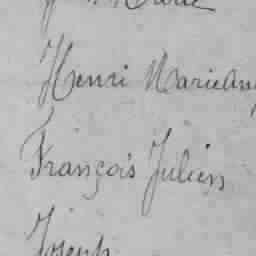 Marie
Henri Marie Ang
François Julien
Joseph